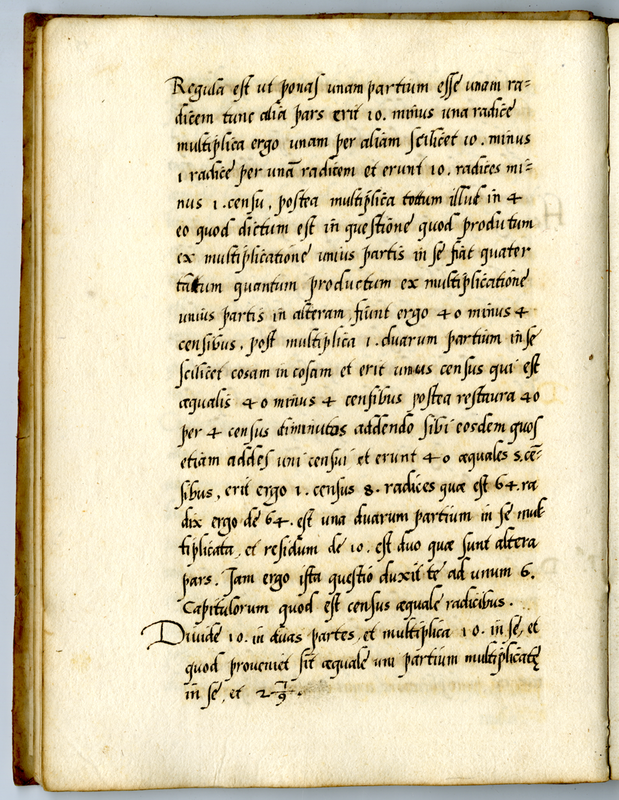 Regula est ut ponas unam partium esse unam ra=
dicem tunc alia pars erit 10. minus una radice
multiplica ergo unam per aliam scilicet 10. minus
1 radice per unã radicem et erunt 10. radices mi=
nus 1. censu, postea multiplica totum illud in 4
eo quod dictum est in questione quod produtum
ex multiplicatione unius partis in se fiat quater
tatum quantum productum ex multiplicatione
unius partis in alteram, fiunt ergo 40 minus 4
censibus, post multiplica 1. duarum partium in se
scilicet cosam in cosam et erit unus census qui est
æqualis 40 minus 4 censibus postea restaura 40
per 4 census diminutos addendo sibi eosdem quos
etiam addes uni censui et erunt 40 æquales 5. cẽ=
sibus, erit ergo 1. census 8. radices quæ est 64. ra
dix ergo de 64. est una duarum partium in se mul
tiplicata, et residum de 10. est duo quæ sunt altera
pars. Jam ergo ista questio duxit te ad unum 6.
Capitulorum quod est census æquale radicibus.
Divide 10. in duas partes, et multiplica 10. in se, et
quod proveniet sit æquale uni partium multiplicatę
in se, et 2 7/9.